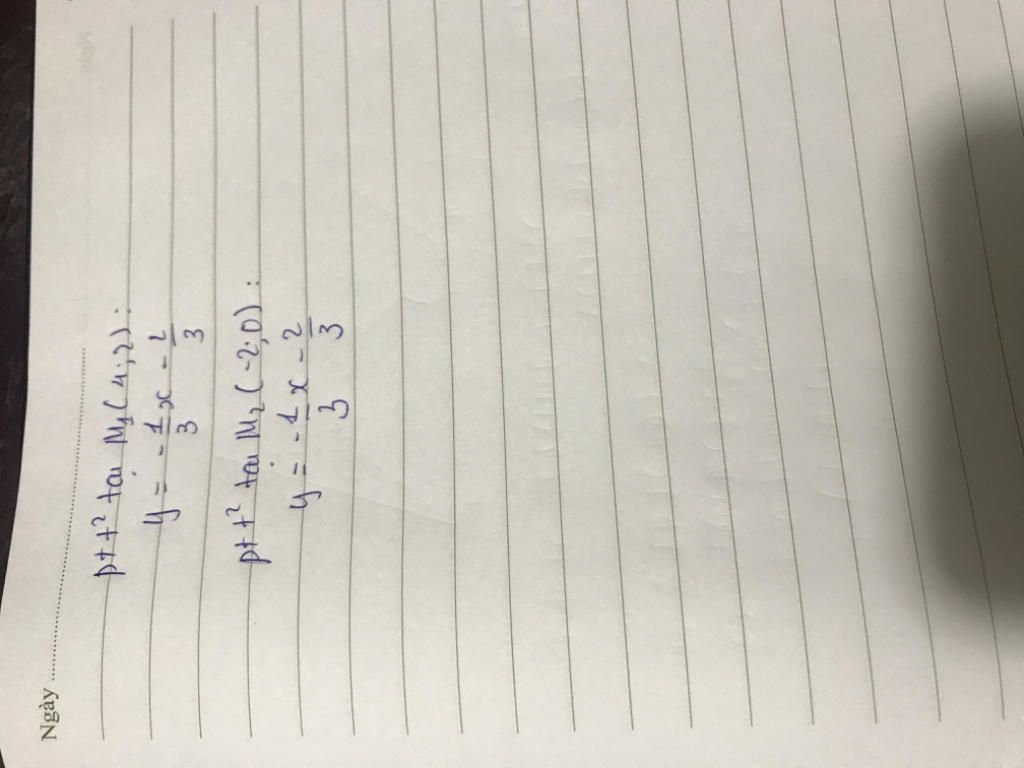 Ngày
ptt² tại M₁(4;2):
y = -1/3 x - 2/3
ptt² tại M₂(-2;0):
y = -1/3 x - 2/3